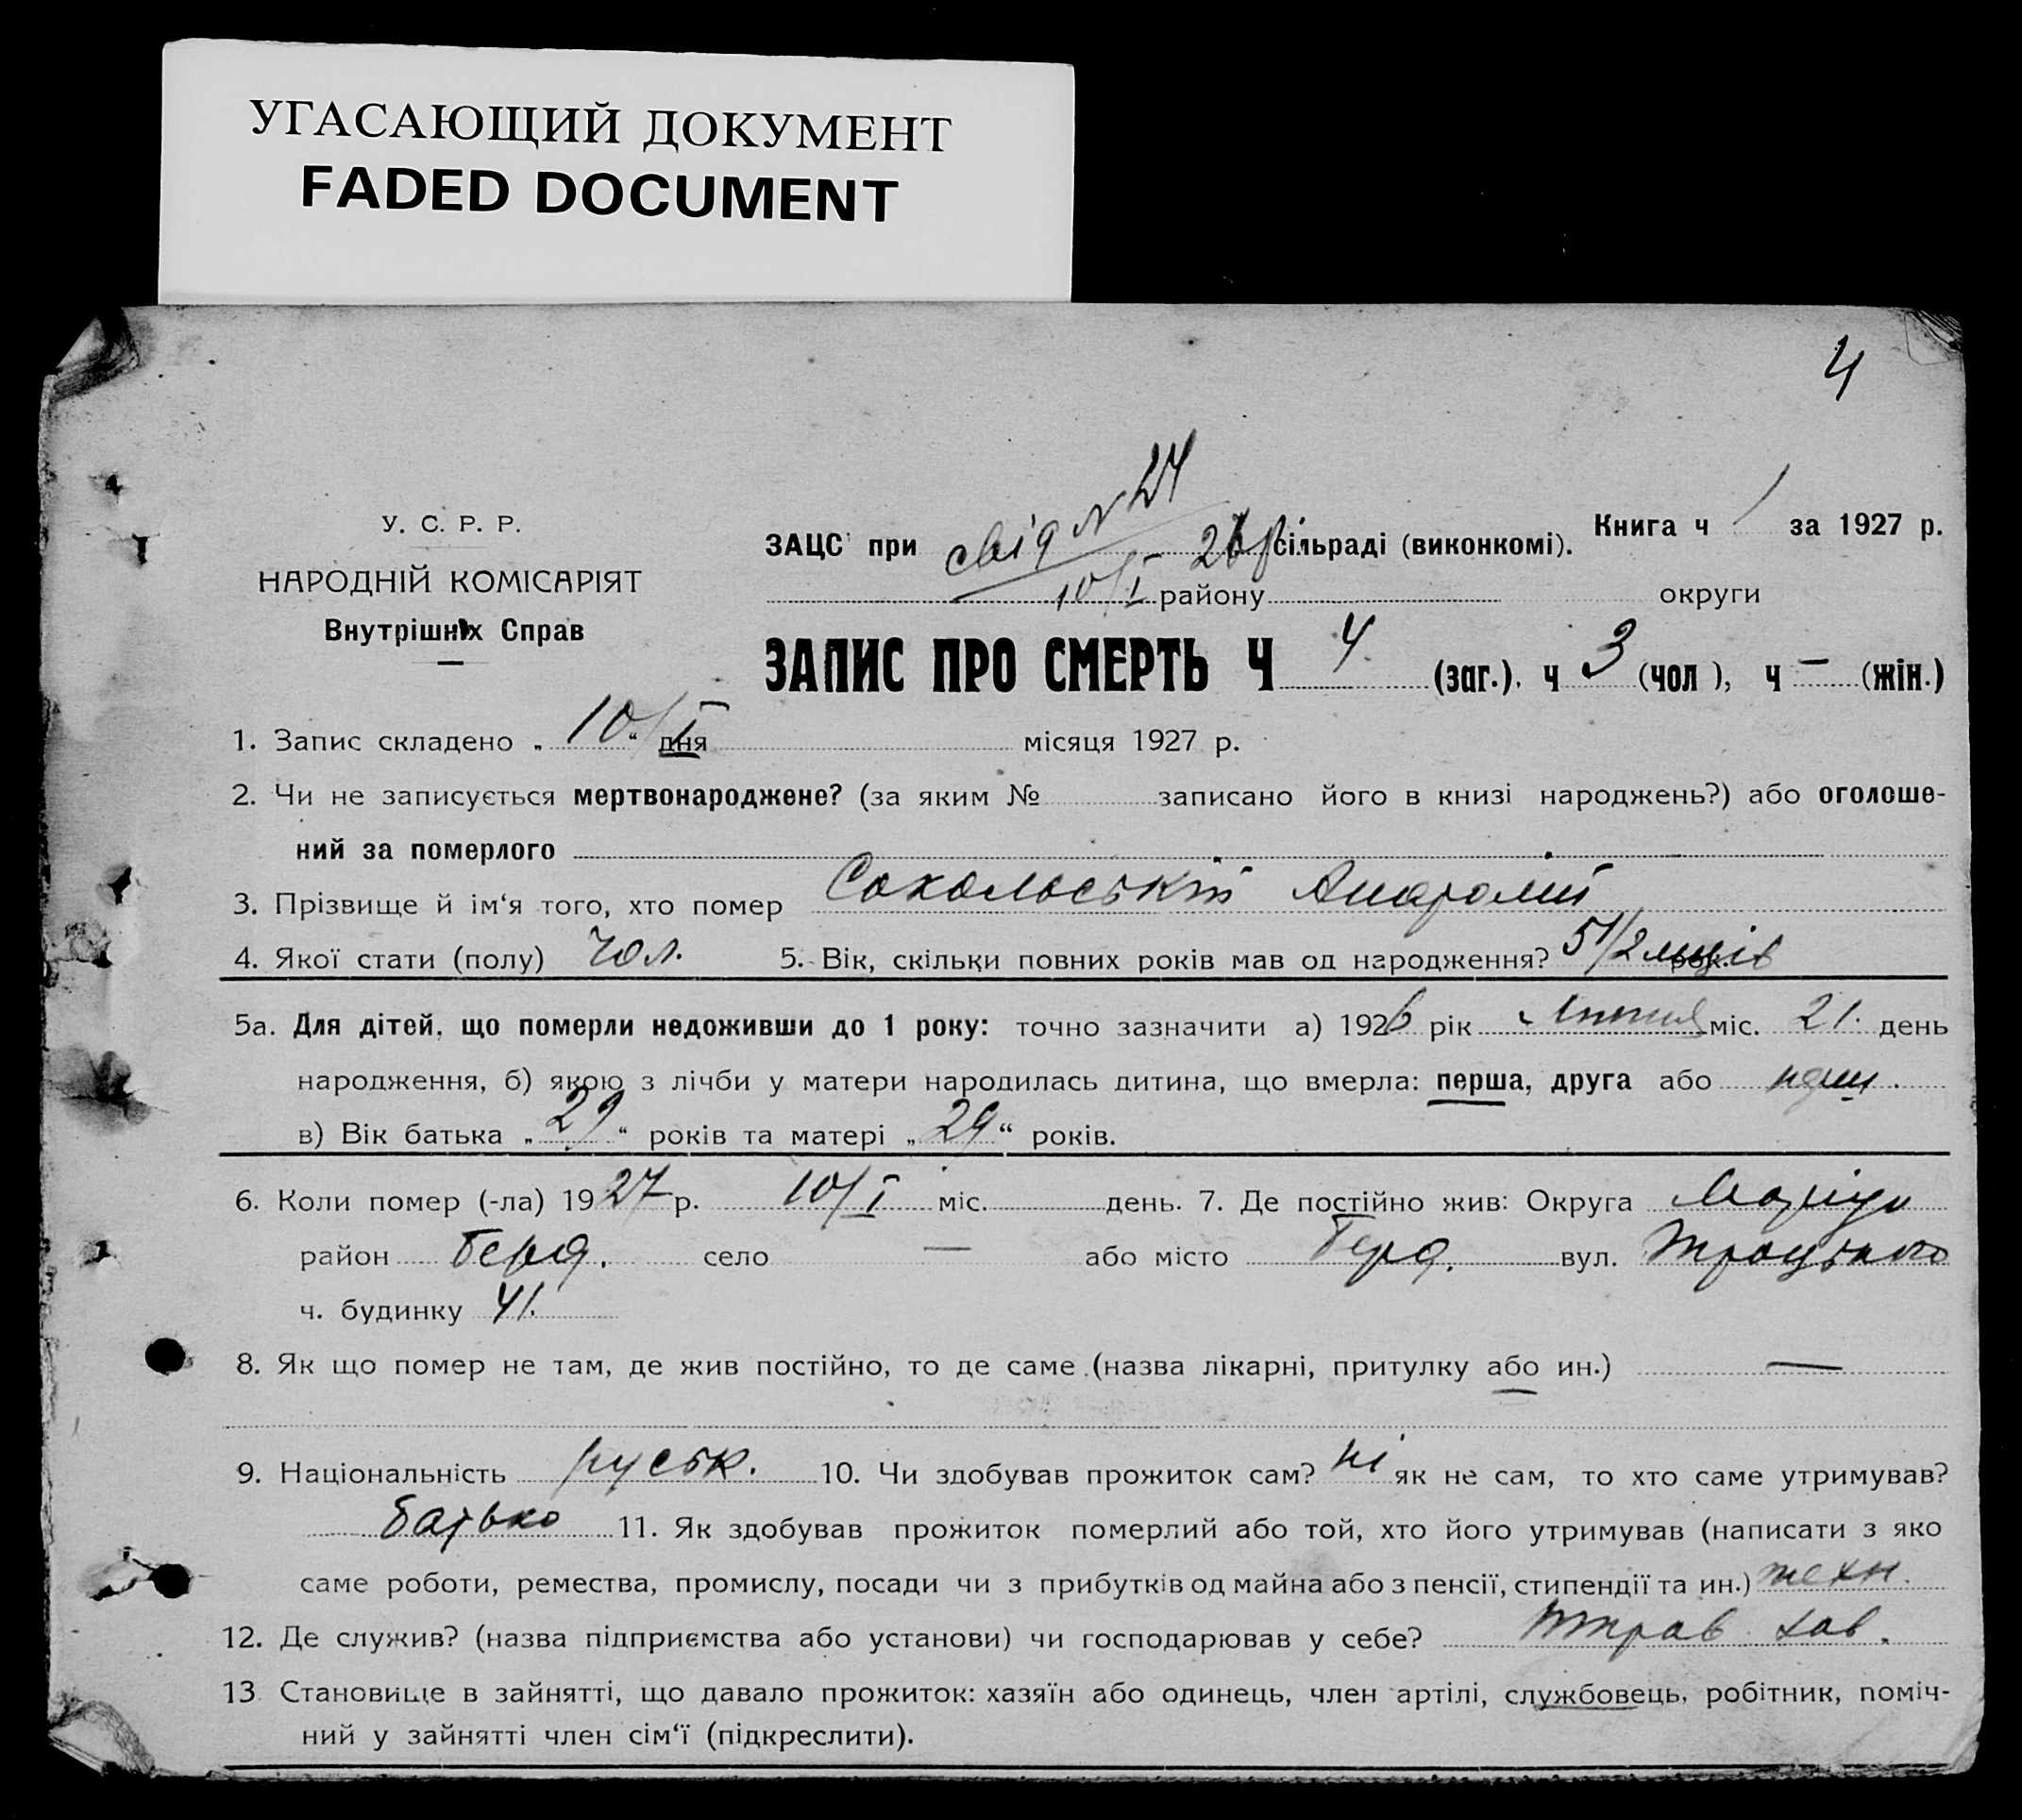 УГАСАЮЩИЙ ДОКУМЕНТ
FADED DOCUMENT
4
У. С. Р. Р.
НАРОДНІЙ КОМІСАРІЯТ
Внутрішніх Справ
ЗАЦС при свід N 24 сільраді (виконкомі). Книга ч 1 за 1927 р.
10/I району округи
ЗАПИС ПРО СМЕРТЬ Ч 4 (заг.), ч 3 (чол), ч — (жін.)
1. Запис складено „ 10/I “ дня місяця 1927 р.
2. Чи не записується мертвонароджене? (за яким № записано його в книзі народжень?) або оголоше-
ний за померлого
3. Прізвище й ім‘я того, хто помер Сокольський Анатолій
4. Якої стати (полу) чол. 5. Вік, скільки повних років мав од народження? 5 1/2 місців
5а. Для дітей, що померли недоживши до 1 року: точно зазначити а) 1926 рік липня міс. 21. день
народження, б) якою з лічби у матери народилась дитина, що вмерла: перша, друга або
в) Вік батька „ 29 “ років та матері „ 29 “ років.
6. Коли помер (-ла) 1927 р. 10/I міс. день. 7. Де постійно жив: Округа Маріуп
район Берд. село — або місто Берд. вул. Троцького
ч. будинку 41.
8. Як що помер не там, де жив постійно, то де саме (назва лікарні, притулку або ин.) —
9. Національність руськ. 10. Чи здобував прожиток сам? ні як не сам, то хто саме утримував?
батько 11. Як здобував прожиток померлий або той, хто його утримував (написати з яко
саме роботи, ремества, промислу, посади чи з прибутків од майна або з пенсії, стипендії та ин.) техн.
12. Де служив? (назва підприємства або установи) чи господарював у себе?
13 Становище в зайнятті, що давало прожиток: хазяїн або одинець, член артілі, службовець, робітник, поміч-
ний у зайнятті член сім‘ї (підкреслити).